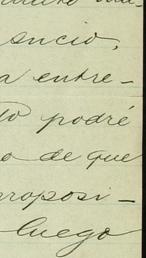 ancio,
a entre-
to podré
o de que
roposi-
luego